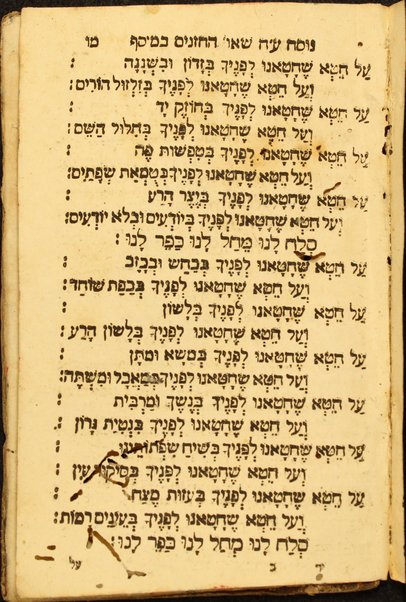 נוסח ע״ח שאו׳ החזנים במוסף מו
עַל חֵטְא שֶׁחָטָאנוּ לְפָנֶיךָ בְּזָדוֹן וּבִשְׁגָגָה :
וְעַל חֵטְא שֶׁחָטָאנוּ לְפָנֶיךָ בְּזִלְזוּל הוֹרִים :
עַל חֵטְא שֶׁחָטָאנוּ לְפָנֶיךָ בְּחוֹזֶק יָד :
וְעַל חֵטְא שֶׁחָטָאנוּ לְפָנֶיךָ בְּחִלּוּל הַשֵּׁם :
עַל חֵטְא שֶׁחָטָאנוּ לְפָנֶיךָ בְּטִפְשׁוּת פֶּה :
וְעַל חֵטְא שֶׁחָטָאנוּ לְפָנֶיךָ בְּטֻמְאַת שְׂפָתַיִם :
עַל חֵטְא שֶׁחָטָאנוּ לְפָנֶיךָ בְּיֵצֶר הָרַע :
וְעַל חֵטְא שֶׁחָטָאנוּ לְפָנֶיךָ בְּיוֹדְעִים וּבְלֹא יוֹדְעִים :
סְלַח לָנוּ מְחַל לָנוּ כַּפֶּר לָנוּ :
עַל חֵטְא שֶׁחָטָאנוּ לְפָנֶיךָ בְּכַחַשׁ וּבְכָזָב :
וְעַל חֵטְא שֶׁחָטָאנוּ לְפָנֶיךָ בְּכַפַּת שׁוֹחַד :
עַל חֵטְא שֶׁחָטָאנוּ לְפָנֶיךָ בְּלָשׁוֹן :
וְעַל חֵטְא שֶׁחָטָאנוּ לְפָנֶיךָ בְּלָשׁוֹן הָרַע :
עַל חֵטְא שֶׁחָטָאנוּ לְפָנֶיךָ בְּמַשָּׂא וּמַתָּן :
וְעַל חֵטְא שֶׁחָטָאנוּ לְפָנֶיךָ בְּמַאֲכָל וּמִשְׁתֶּה :
עַל חֵטְא שֶׁחָטָאנוּ לְפָנֶיךָ בְּנֶשֶׁךְ וּמַרְבִּית :
וְעַל חֵטְא שֶׁחָטָאנוּ לְפָנֶיךָ בִּנְטִיַּת גָּרוֹן :
עַל חֵטְא שֶׁחָטָאנוּ לְפָנֶיךָ בְּשִׂיחַ שִׂפְתוֹתֵינוּ
וְעַל חֵטְא שֶׁחָטָאנוּ לְפָנֶיךָ בְּסִיקּוּר עַיִן
עַל חֵטְא שֶׁחָטָאנוּ לְפָנֶיךָ בְּעַזּוּת מֶצַח :
וְעַל חֵטְא שֶׁחָטָאנוּ לְפָנֶיךָ בְּעֵינַיִם רָמוֹת :
סְלַח לָנוּ מְחַל לָנוּ כַּפֶּר לָנוּ :
יד ב על